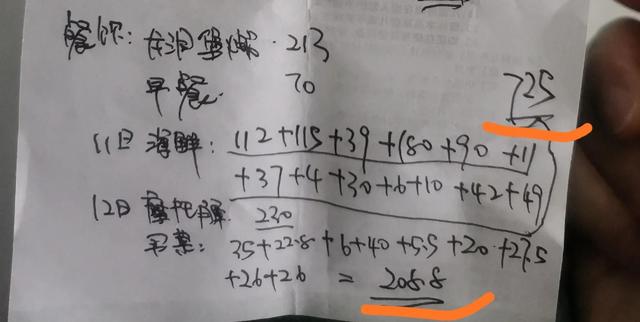 餐饮: 213
早餐. 70
725
11日 海鲜: 112+115+39+180+90+11
+37+4+30+6+10+42+49
12日 230
买菜: 35+22.8+6+40+5.5+20+27.5
+26+26 = 208.8